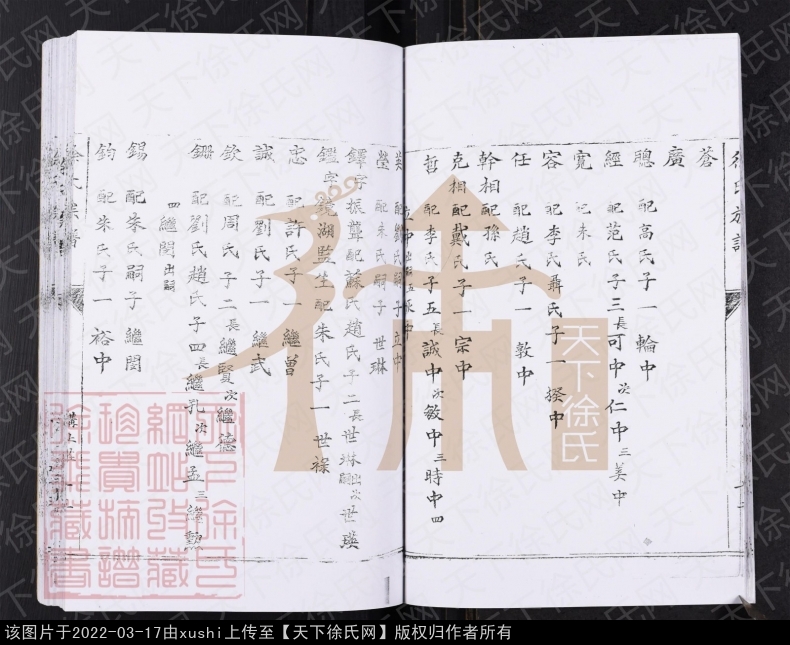 徐氏族譜
蒼
廣
聰 配高氏子一輪中
經 配范氏子三長可中次仁中三美中
寬 配朱氏
容 配李氏聶氏子一揆中
任 配趙氏子一敦中
幹相配孫氏
克相配戴氏子一宗中
哲 配李氏子五長誠中次敏中三時中四
瑩 配朱氏嗣子世琳
鐸字振聲配蘇氏趙氏子二長世琳出嗣次世瑛
鑑字鏡湖監生配朱氏子一世祿
忠 配許氏子一繼曾
誠 配劉氏子一繼武
欽 配周氏子二長繼賢次繼德
鏞 配劉氏趙氏子四長繼孔次繼孟三繼勲
四繼閔出嗣
錫 配朱氏嗣子繼閔
鈞 配朱氏子一裕中
天下徐氏
天下徐氏网
该图片于2022-03-17由xushi上传至【天下徐氏网】版权归作者所有